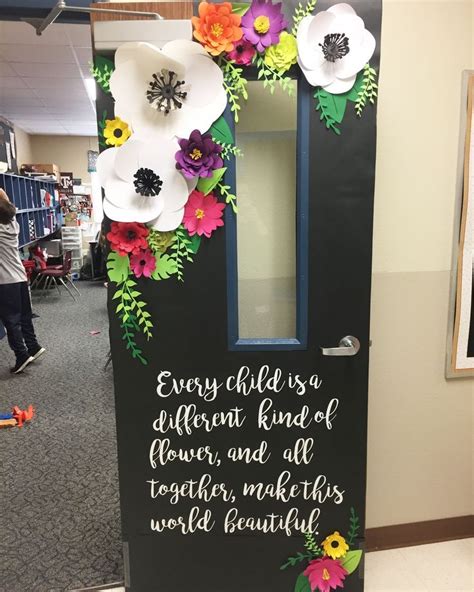 Every child is a
different kind of
flower, and all
together, make this
world beautiful.